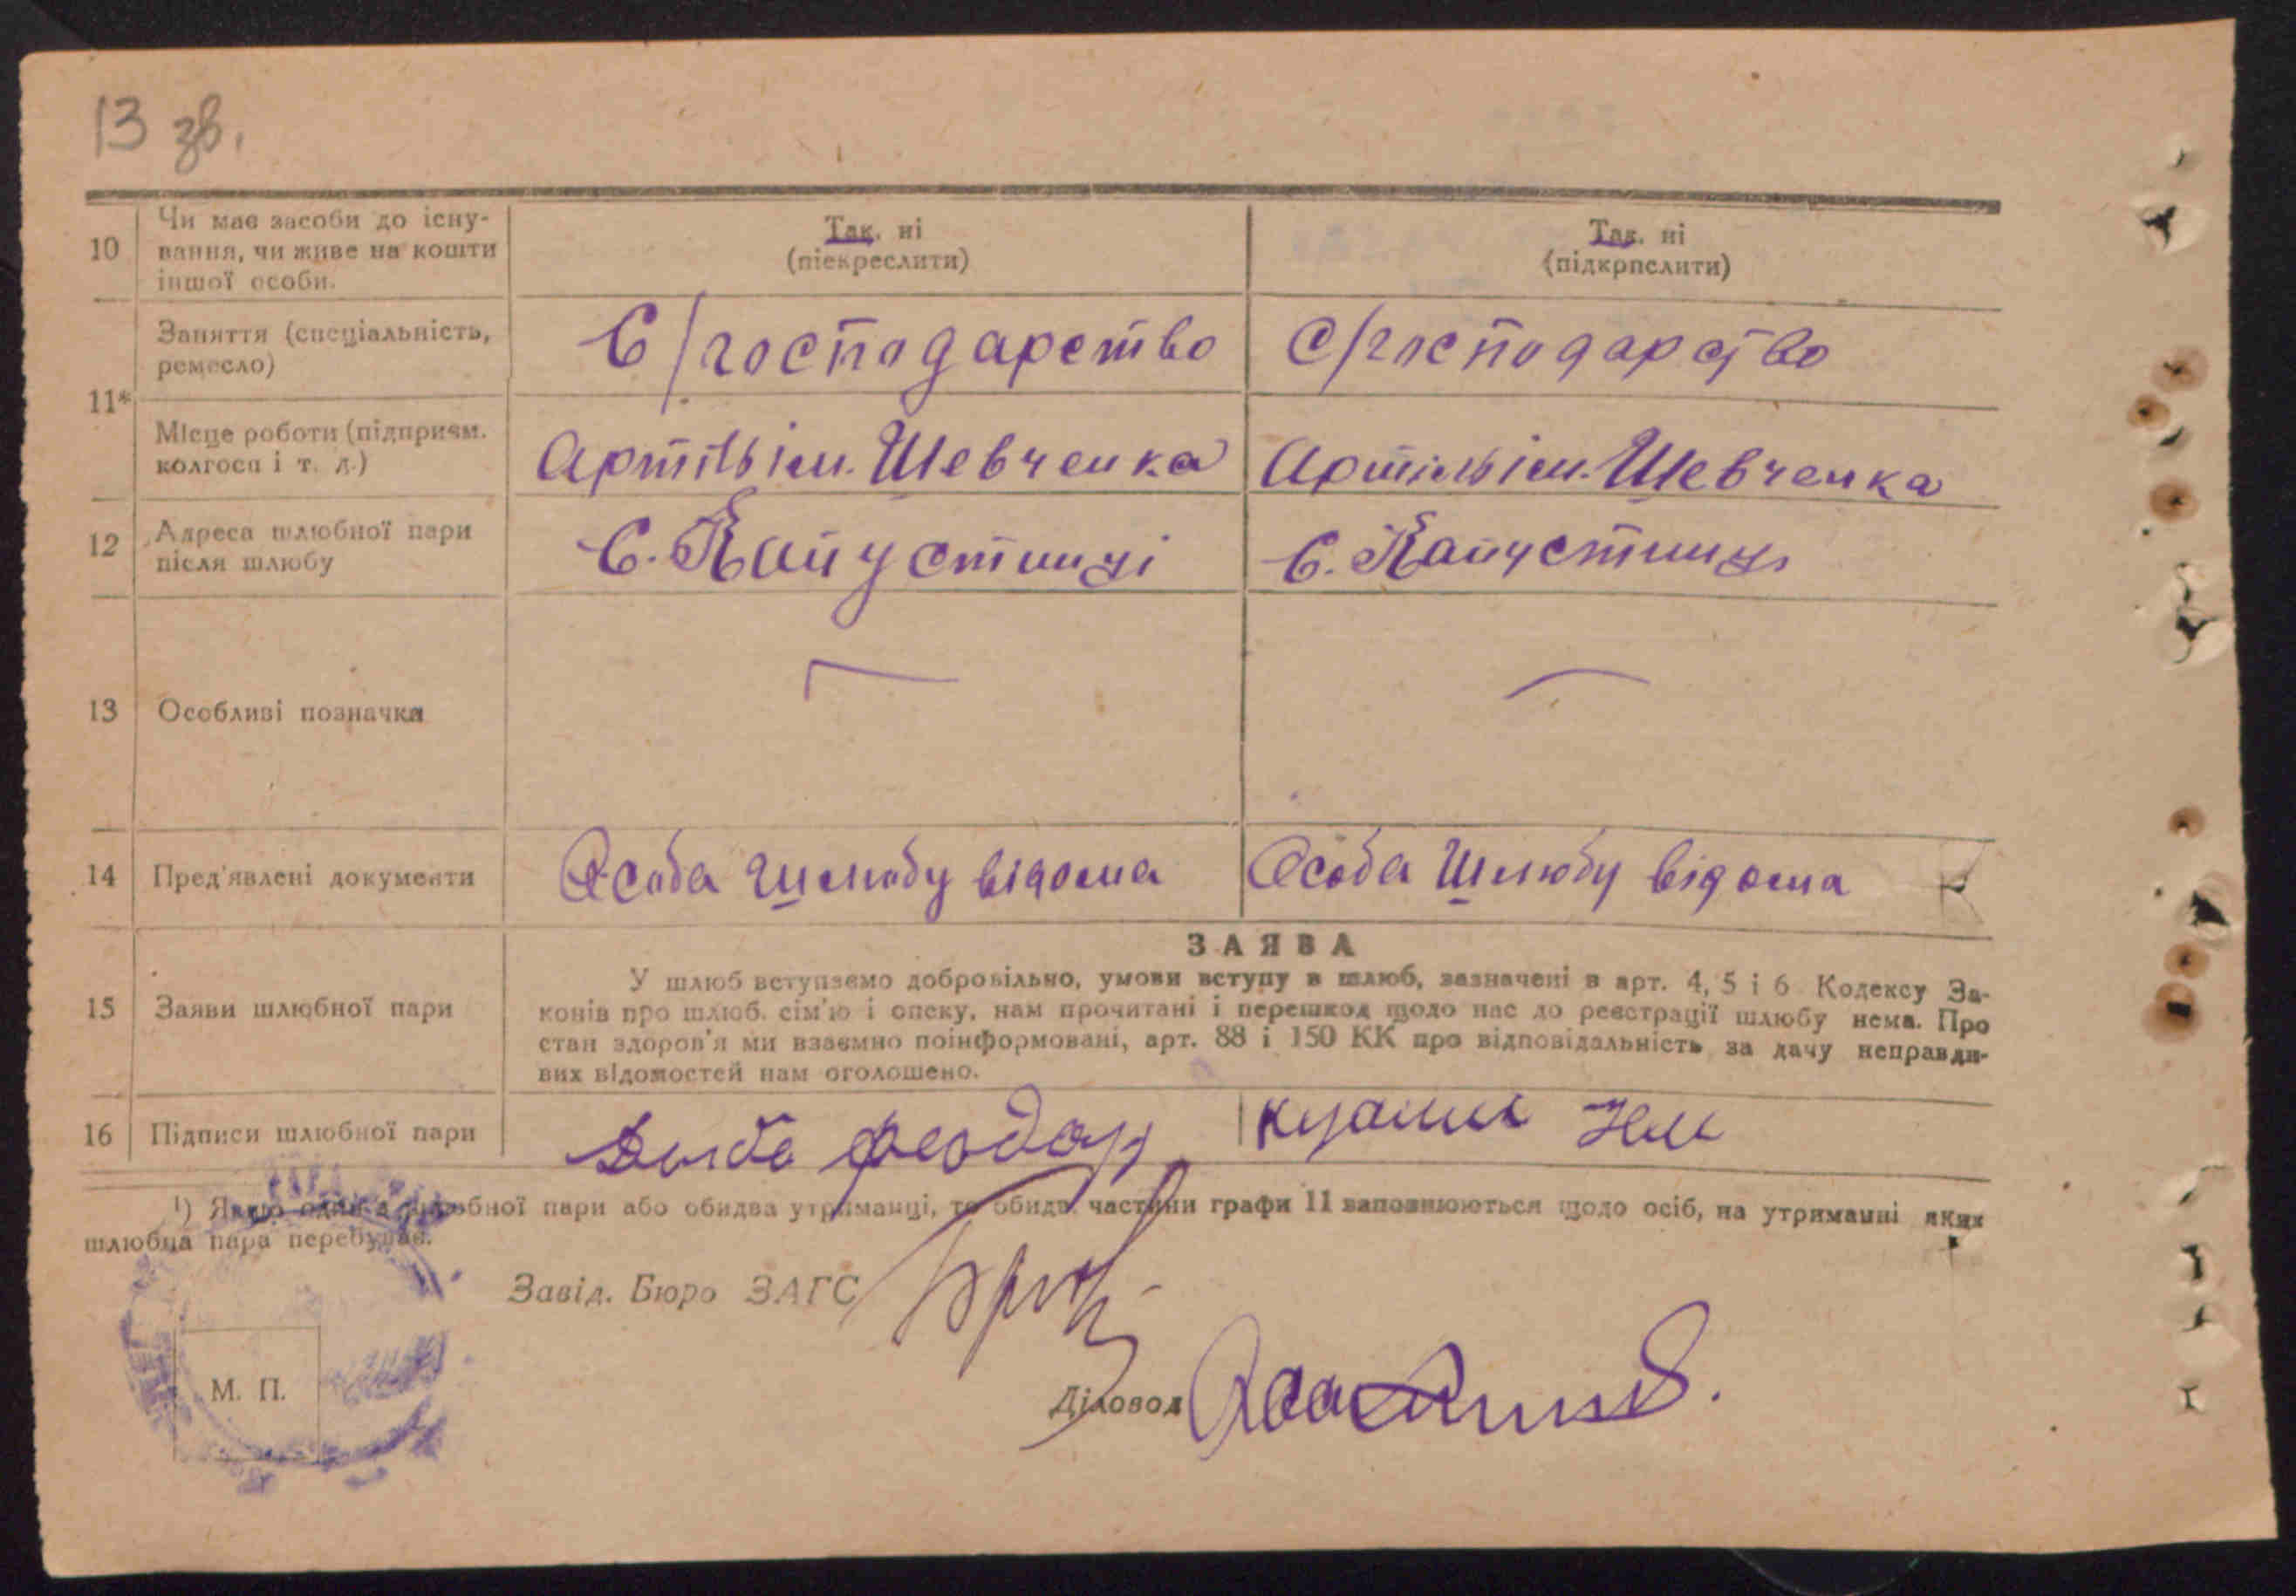 13 зв.
10
Чи має засоби до існу-
вання, чи живе на кошти
іншої особи.
Так. ні
(піекреслити)
Так. ні
(підкрпслити)
11*
Заняття (спеціальність,
ремесло)
С/господарство
С/господарство
Місце роботи (підприєм.
колгосп і т. д.)
Артіль ім. Шевченка
Артіль ім. Шевченка
12
Адреса шлюбної пари
після шлюбу
С. Капустинці
С. Капустинці
13
Особливі позначки
14
Пред'явлені документи
Особа шлюбу відома
Особа шлюбу відома
15
Заяви шлюбної пари
ЗАЯВА
У шлюб вступаємо добровільно, умови вступу в шлюб, зазначені в арт. 4, 5 і 6 Кодексу За-
конів про шлюб. сім'ю і опеку, нам прочитані і перешкод щодо нас до реєстрації шлюбу нема. Про
стан здоров'я ми взаємно поінформовані, арт. 88 і 150 КК про відповідальність за дачу неправди-
вих відомостей нам оголошено.
16
Підписи шлюбної пари
Феодар
¹) Якщо один з шлюбної пари або обидва утриманці, то обидв. частини графи 11 заповнюються щодо осіб, на утриманні яких
шлюбна пара перебуває.
Завід. Бюро ЗАГС
М. П.
Діловод